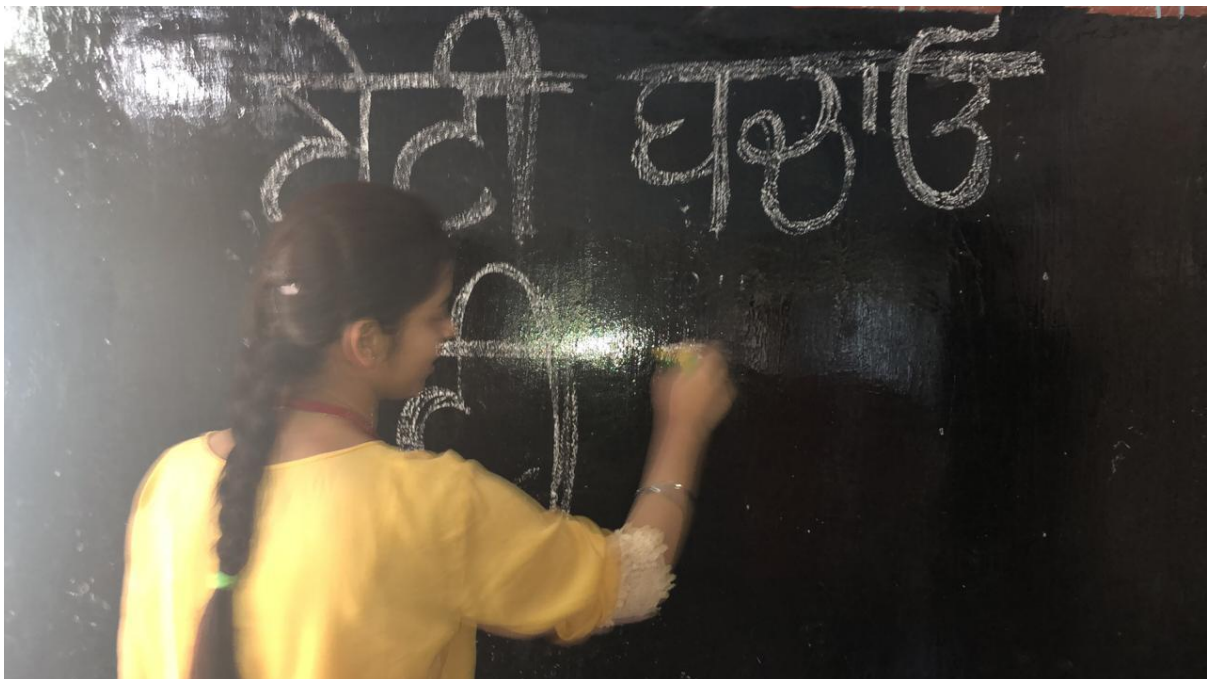 ਬੇਟੀ ਬਚਾਓ